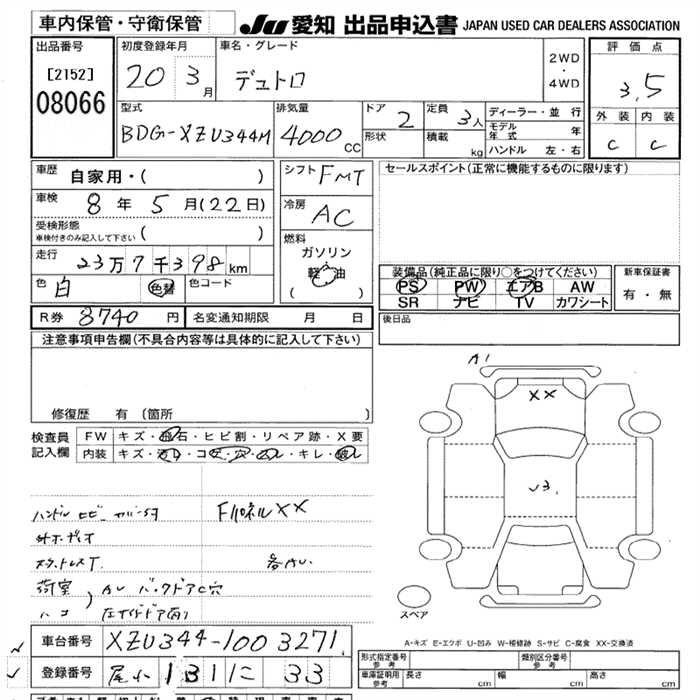 車内保管・守衛保管
JU 愛知 出品申込書 JAPAN USED CAR DEALERS ASSOCIATION
出品番号
[2152]
08066
初度登録年月
20 3月
車名・グレード
デュトロ
2WD
・
4WD
評価点
3.5
外装 内装
C C
型式
BDG-XZU344M
排気量
4000 CC
ドア
2
形状
定員
3人
積載 kg
ディーラー・並行
モデル年式 年
ハンドル 左・右
車歴
自家用・( )
車検
8年 5月(22日)
受検形態
車検付きのみ記入して下さい ( )
走行
23万7千398km
色
白 色替
色コード
シフト FMT
冷房
AC
燃料
ガソリン
軽油
( )
セールスポイント(正常に機能するものに限ります)
装備品(純正品に限り○をつけてください)
PS PW エアB AW
SR ナビ TV カワシート
新車保証書
有・無
R券 8740 円
名変通知期限 月 日
後日品
注意事項申告欄(不具合内容等は具体的に記入して下さい)
修復歴 有(箇所 )
検査員
記入欄
FW キズ・飛石・ヒビ割・リペア跡・X要
内装 キズ・汚レ・コゲ・穴・スレ・キレ・破レ
ハンドル
FパネルXX
荷室
A1
XX
cm cm
cm cm
スペア
A-キズ E-エクボ U-凹み W-補修跡 S-サビ C-腐食 XX-交換済
車台番号 XZU344-1003271
登録番号 尾小 131 に 33
形式指定番号
参考
類別区分番号
参考
車庫証明用
参考
長さ cm 幅 cm 高さ cm